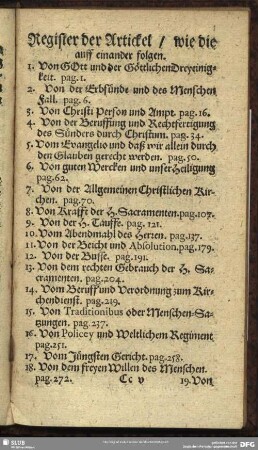 Register der Artickel / wie die
auff einander folgen.
1. Von GOtt und der Göttlichen Dreyeinig-
keit. pag. 1.
2. Von der Erbsünde und des Menschen
Fall. pag. 6.
3. Von Christi Person und Ampt. pag. 16.
4. Von der Beruffung und Rechtfertigung
des Sünders durch Christum. pag. 34.
5. Vom Evangelio und daß wir allein durch
den Glauben gerecht werden. pag. 50.
6. Von guten Wercken und unser Heiligung
pag. 62.
7. Von der Allgemeinen Christlichen Kir-
chen. pag. 70.
8. Von Krafft der H. Sacramenten. pag. 107.
9. Von der H. Tauffe. pag. 121.
10. Vom Abendmahl des Herren. pag. 137.
11. Von der Beicht und Absolution. pag. 179.
12. Von der Busse. pag. 191.
13. Von dem rechten Gebrauch der H. Sa-
cramenten. pag. 204.
14. Vom Beruff und Verordnung zum Kir-
chendienst. pag. 219.
15. Von Traditionibus oder Menschen-Sa-
tzungen. pag. 237.
16. Von Policey und Weltlichem Regiment
pag. 251.
17. Vom Jüngsten Gericht. pag. 258.
18. Von dem freyen Willen des Menschen.
pag. 272. Cc v 19. Von
SLUB
DFG